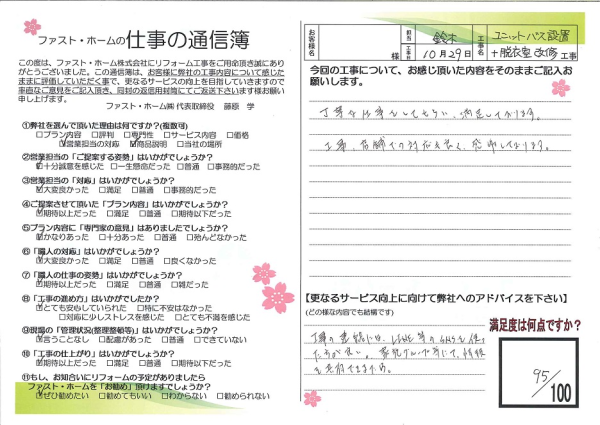 ファスト・ホームの仕事の通信簿
この度は、ファスト・ホーム株式会社にリフォーム工事をご用命頂き誠にあり
がとうございました。この通信簿は、お客様に弊社の工事内容について感じた
ままに評価していただく事で、更なるサービスの向上を目指していきますので
率直なご意見をご記入頂き、同封の返信用封筒にてご返送下さいます様お願い
申し上げます。
ファスト・ホーム㈱ 代表取締役 藤原 学
①弊社を選んで頂いた理由は何ですか?(複数可)
□プラン内容 □評判 ☑専門性 □サービス内容 □価格
☑営業担当の対応 ☑商品説明 □当社の場所
②営業担当の「ご提案する姿勢」はいかがでしょうか?
☑十分誠意を感じた □一生懸命だった □普通 □事務的だった
③営業担当の「対応」はいかがでしょうか?
☑大変良かった □満足 □普通 □事務的だった
④ご提案させて頂いた「プラン内容」はいかがでしょうか?
☑期待以上だった □満足 □普通 □期待以下だった
⑤プラン内容に「専門家の意見」はありましたでしょうか?
☑かなりあった □十分あった □普通 □殆んどなかった
⑥「職人の対応」はいかがでしょうか?
☑大変良かった □満足 □普通 □良くなかった
⑦「職人の仕事の姿勢」はいかがでしょうか?
☑期待以上だった □満足 □普通 □雑だった
⑧「工事の進め方」はいかがでしたか?
☑とても安心していられた □特に不安はなかった
□対応に少しストレスを感じた □とても不満を感じた
⑨現職の「管理状況(整理整頓等)」はいかがでしょうか?
☑言うことなし □配慮があった □普通 □できていない
⑩「工事の仕上がり」はいかがでしょうか?
☑期待以上だった □満足 □普通 □期待以下だった
⑪もし、お知合いにリフォームの予定がありましたら
ファスト・ホームを「お勧め」頂けますでしょうか?
☑ぜひ勧めたい □勧めてもいい □わからない □勧められない
お客様名 様
担当 鈴木
工事日 10月29日
工事名 ユニットバス設置
+脱衣室改修 工事
今回の工事について、お感じ頂いた内容をそのままご記入お
願いします。
丁寧な仕事をしてもらい、満足しております。
工事、店舗での対応も良く、感謝しております。
【更なるサービス向上に向けて弊社へのアドバイスを下さい】
(どの様な内容でも結構です)
工事の連絡には、LINE等のSNSを使っ
た方が良い。家族グループ等にて、情報
を共有できるため。
満足度は何点ですか?
95/100